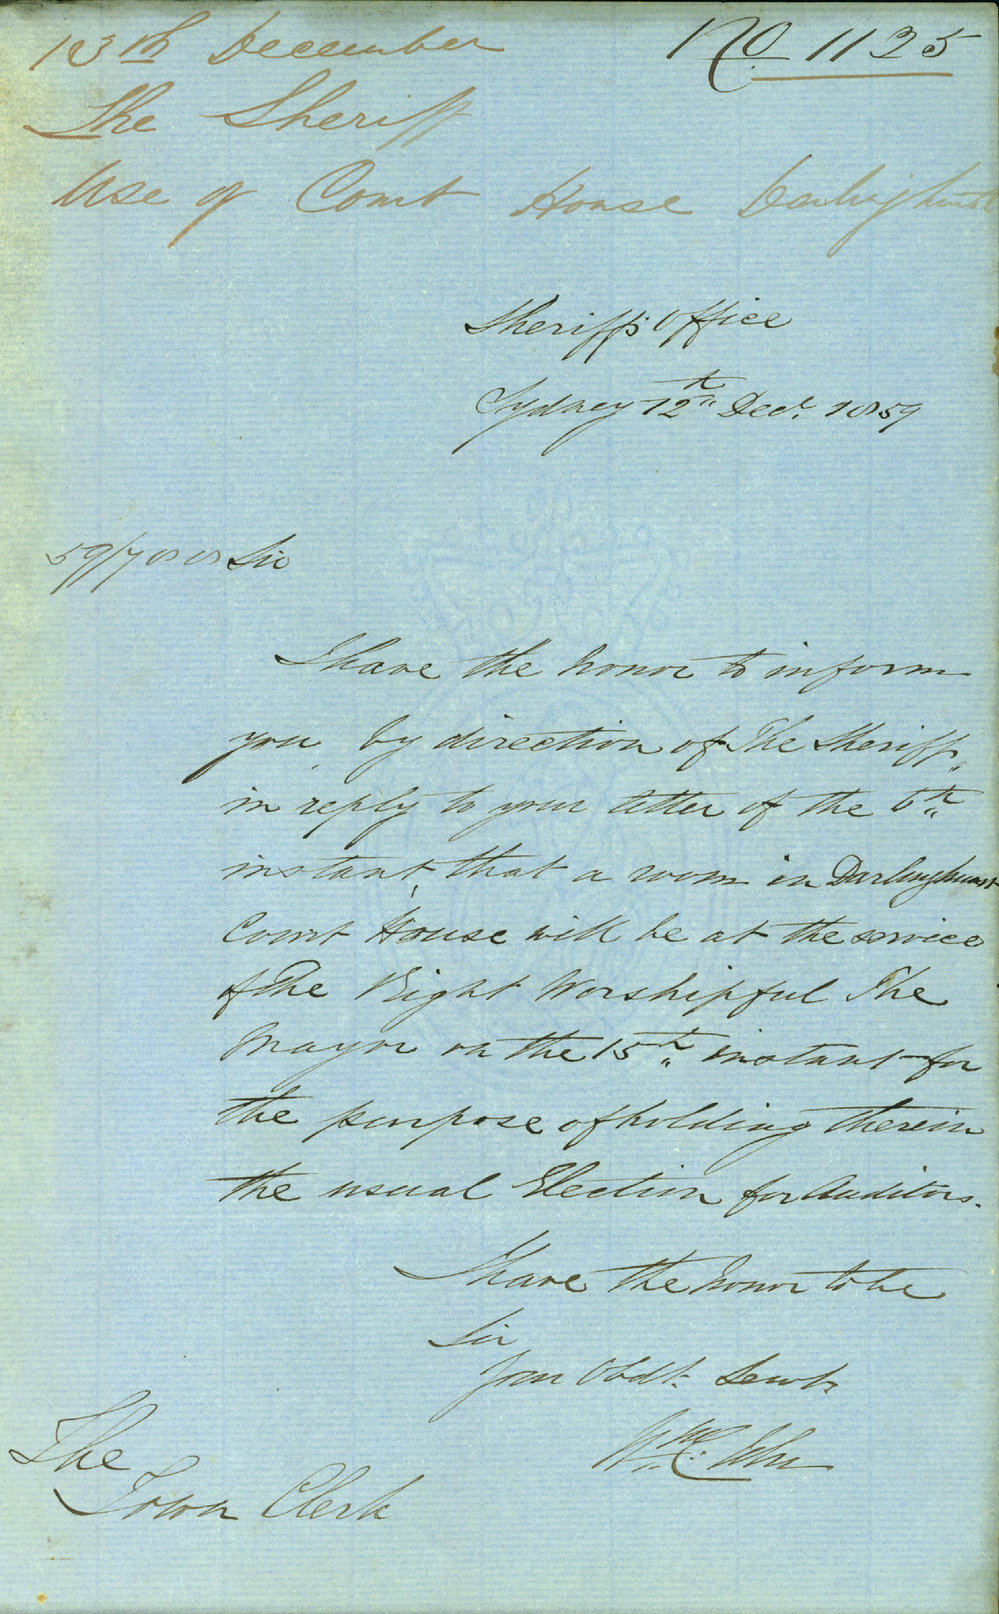 13th December
No 1125
The Sheriff
Use of Court House Darlinghurst
Sheriff's Office
Sydney 12th Decr. 1859
59/7808 Sir
I have the honor to inform
you, by direction of The Sheriff,
in reply to your letter of the 6th
instant, that a room in Darlinghurst
Court House will be at the service
of The Right Worshipful The
Mayor on the 15th instant for
the purpose of holding therein
the usual Election for Auditors.
I have the honor to be
Sir
Your Obdt. Servt.
Wm.
The
Town Clerk